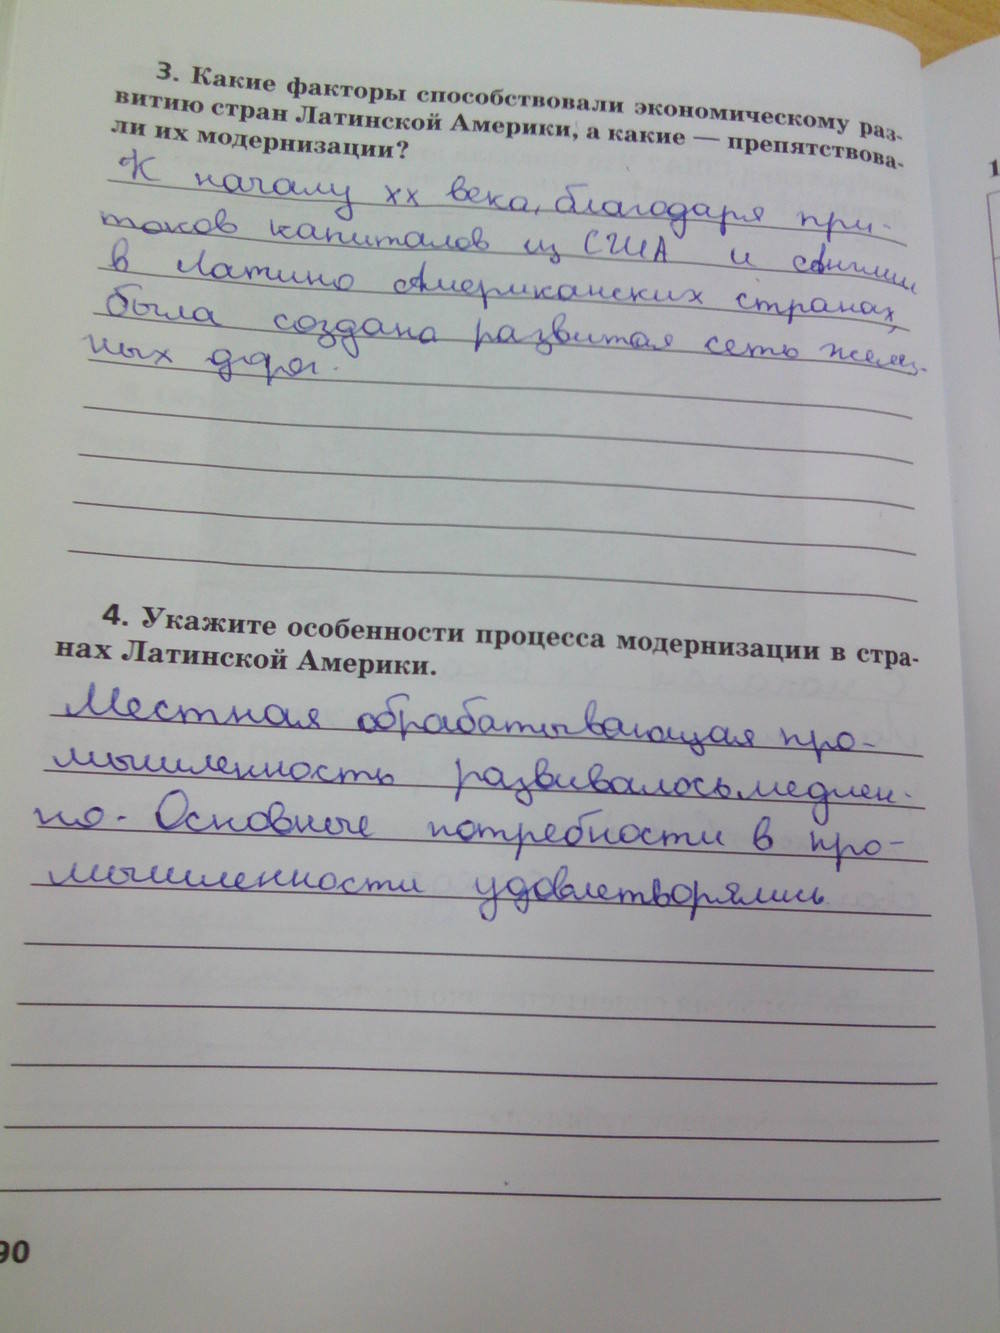 3. Какие факторы способствовали экономическому раз-
витию стран Латинской Америки, а какие — препятствова-
ли их модернизации?
К началу XX века, благодаря при-
токов капиталов из США и Англии
в Латино Американских странах,
была создана развитая сеть желез-
ных дорог.
4. Укажите особенности процесса модернизации в стра-
нах Латинской Америки.
Местная обрабатывающая про-
мышленность развивалось медлен-
но. Основные потребности в про-
мышленности удовлетворялись
90
1